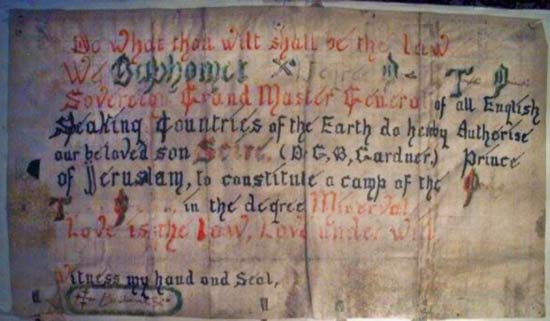 Do what thou wilt shall be the law
We Baphomet X
Sovereign Grand Master General of all English
Speaking Countries of the Earth do hereby Authorise
our beloved son Scire, (Dr G, B, Gardner,) Prince
of Jeruslam, to constitute a camp of the
in the degree Minerval
Love is the Law, Love under will
Witness my hand and Seal,